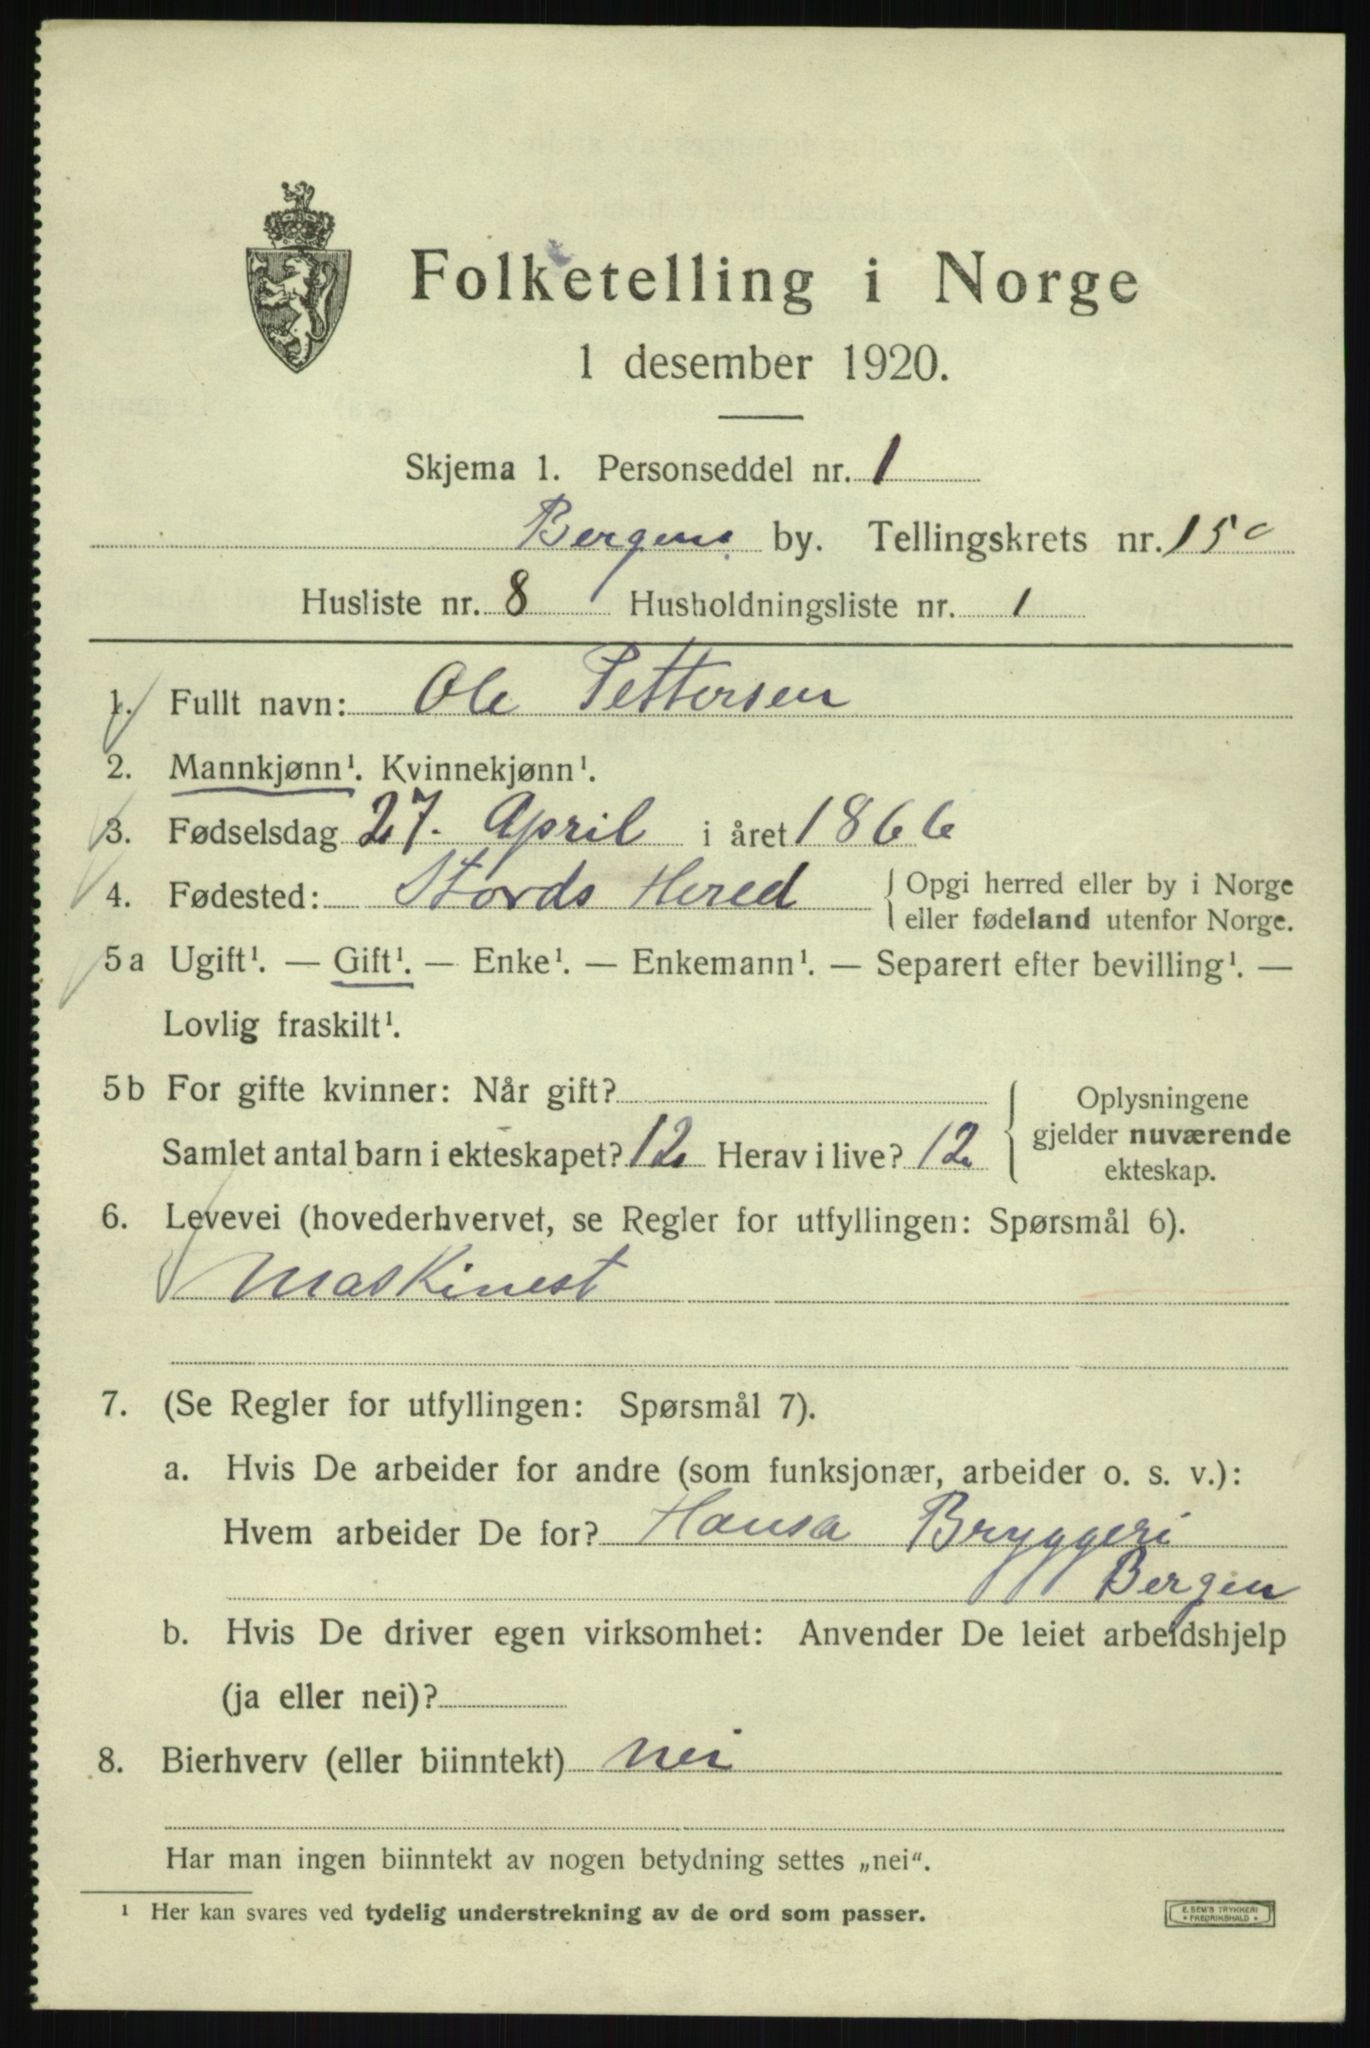 Folketelling i Norge
1 desember 1920.
Skjema 1. Personseddel nr. 1
Bergens by. Tellingskrets nr. 150
Husliste nr. 8 Husholdningsliste nr. 1
1. Fullt navn: Ole Pettersen
2. Mannkjønn¹. Kvinnekjønn¹.
3. Fødselsdag 27. April i året 1866
4. Fødested: Stords Hered { Opgi herred eller by i Norge
eller fødeland utenfor Norge.
5a Ugift¹. — Gift¹. — Enke¹. — Enkemann¹. — Separert efter bevilling¹. —
Lovlig fraskilt¹.
5b For gifte kvinner: Når gift?
Samlet antal barn i ekteskapet? 12 Herav i live? 12
Oplysningene
gjelder nuværende
ekteskap.
6. Levevei (hovederhvervet, se Regler for utfyllingen: Spørsmål 6).
Maskinest
7. (Se Regler for utfyllingen: Spørsmål 7).
a. Hvis De arbeider for andre (som funksjonær, arbeider o. s. v.):
Hvem arbeider De for? Hansa Bryggeri
Bergen
b. Hvis De driver egen virksomhet: Anvender De leiet arbeidshjelp
(ja eller nei)?
8. Bierhverv (eller biinntekt) nei
Har man ingen biinntekt av nogen betydning settes „nei“.
¹ Her kan svares ved tydelig understrekning av de ord som passer.
E. SEM'S TRYKKERI
* FREDRIKSHALD *